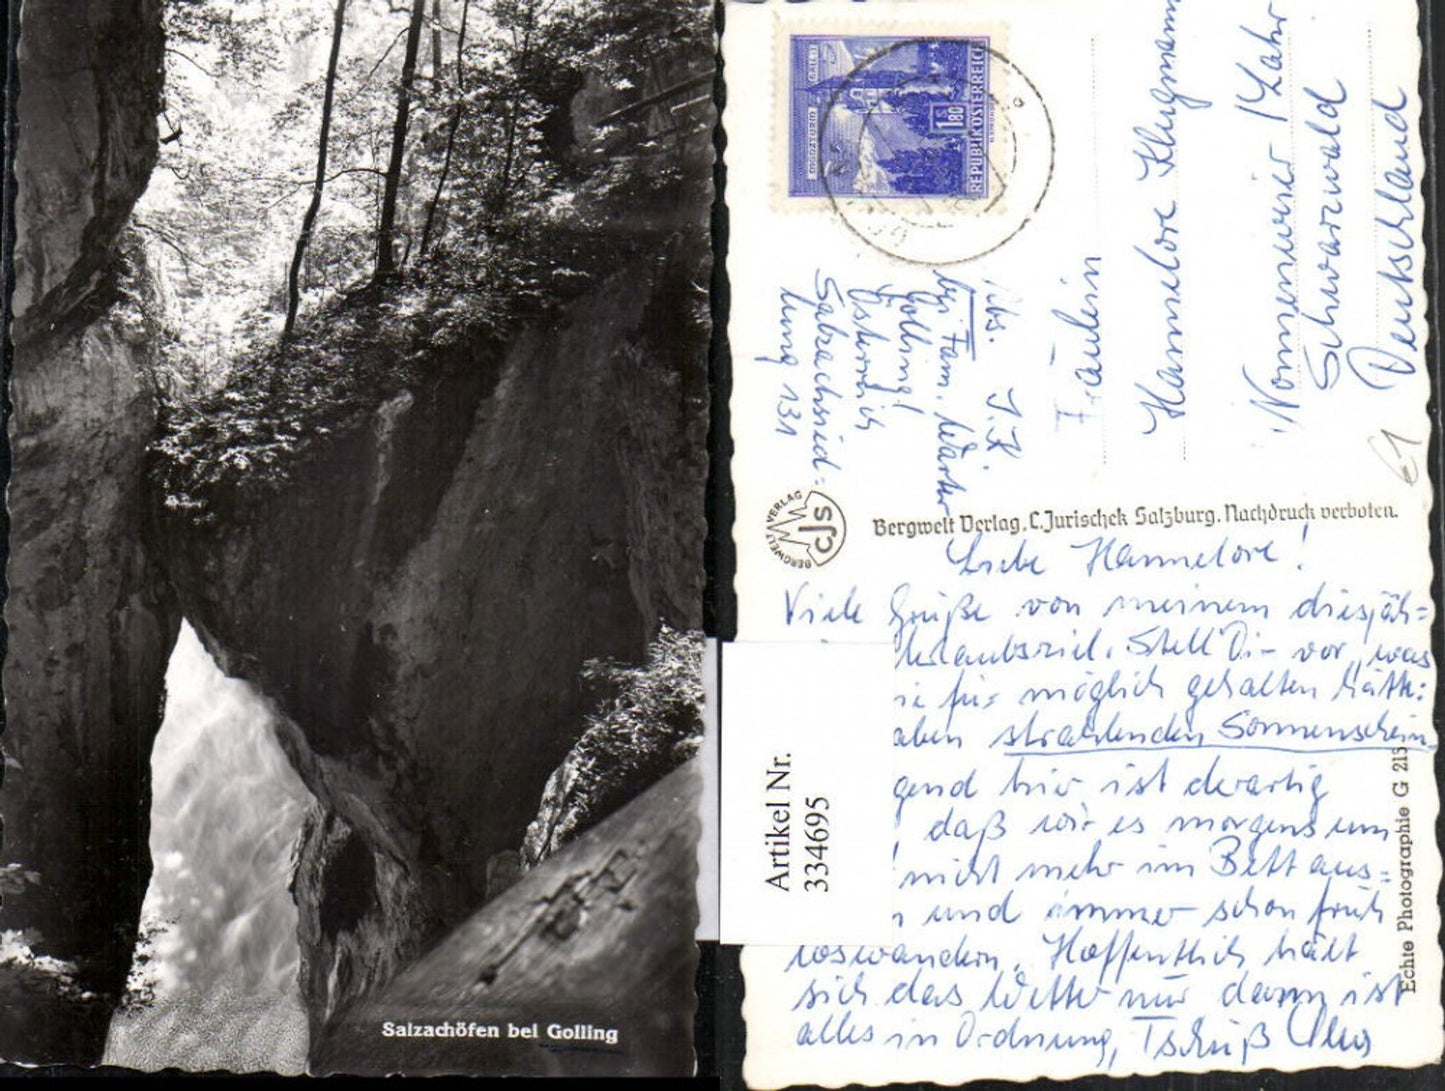 Salzachöfen bei Golling
1.80
REPUBLIK ÖSTERREICH
Abs. I. K.
bei Fam. Warter
Golling/
Österreich
Salzachsied=
lung 131
Fräulein
Hannelore Klugmann
Nonnenweier / Lahr
Schwarzwald
Deutschland
€1
BERGWELT VERLAG
CJS
Bergwelt Verlag, C. Jurischek Salzburg. Nachdruck verboten.
Liebe Hannelore!
Viele Grüße von meinem diesjäh=
Urlaubsziel. Stell Dir vor, was
für möglich gehalten hätte:
aben strahlenden Sonnenschein
gend hier ist derartig
, daß wir es morgens um
nicht mehr im Bett aus=
und immer schon früh
loswandern. Hoffentlich hält
sich das Wetter nur dann ist
alles in Ordnung, Tschüß
Echte Photographie G 215
Artikel Nr.
334695